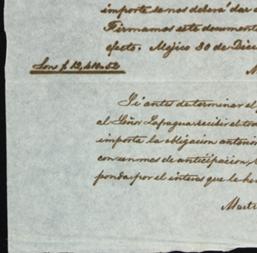 importe se nos deberá dar a
Firmamos este documento
efecto. Méjico 30 de Dici
Son $ 12,410.52
Si antes de terminar el p
al Señor Lafragua recibir el tere
importa la obligacion anterior
con un mes de anticipacion,
ponda por el interes que le he